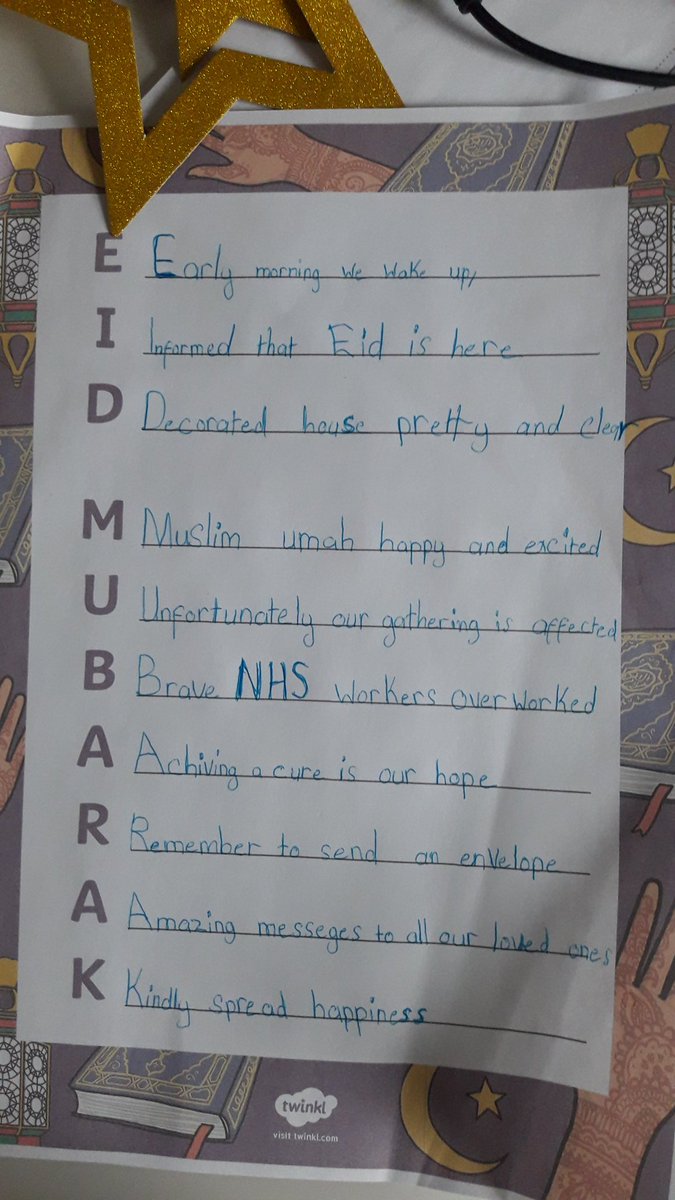 E Early morning we wake up,
I Informed that Eid is here
D Decorated house pretty and clean
M Muslim umah happy and excited
U Unfortunately our gathering is affected
B Brave NHS workers overworked
A Achiving a cure is our hope
R Remember to send an envelope
A Amazing messeges to all our loved ones
K Kindly spread happiness
twinkl
visit twinkl.com